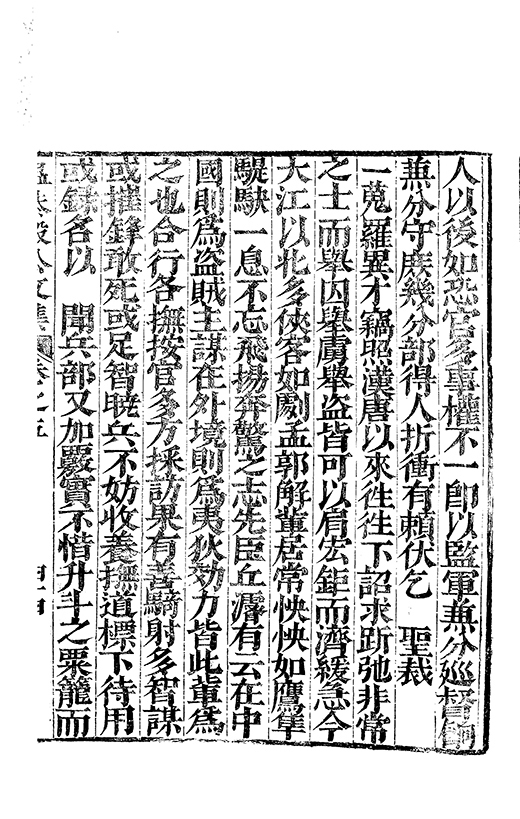 人以後如恐官多事權不一即以監軍兼分廵督餉
兼分守庻幾分部得人折衝有賴伏乞　聖裁
一蒐羅異才竊照漢唐以來徃徃下詔求跅弛非常
之士而舉囚舉虜舉盗皆可以肩宏鉅而濟緩急今
大江以北多俠客如劇孟郭解輩居常怏怏如鷹隼
騠駃一息不忘飛揚奔驁之志先臣丘濬有云在中
國則爲盗賊主謀在外境則爲夷狄効力皆此輩爲
之也合行各撫按官多方採訪果有善騎射多智謀
或摧鋒敢死或足智曉兵不妨收養撫道標下待用
或録名以　聞兵部又加覈實不惜升斗之粟籠而
公文集　卷之五